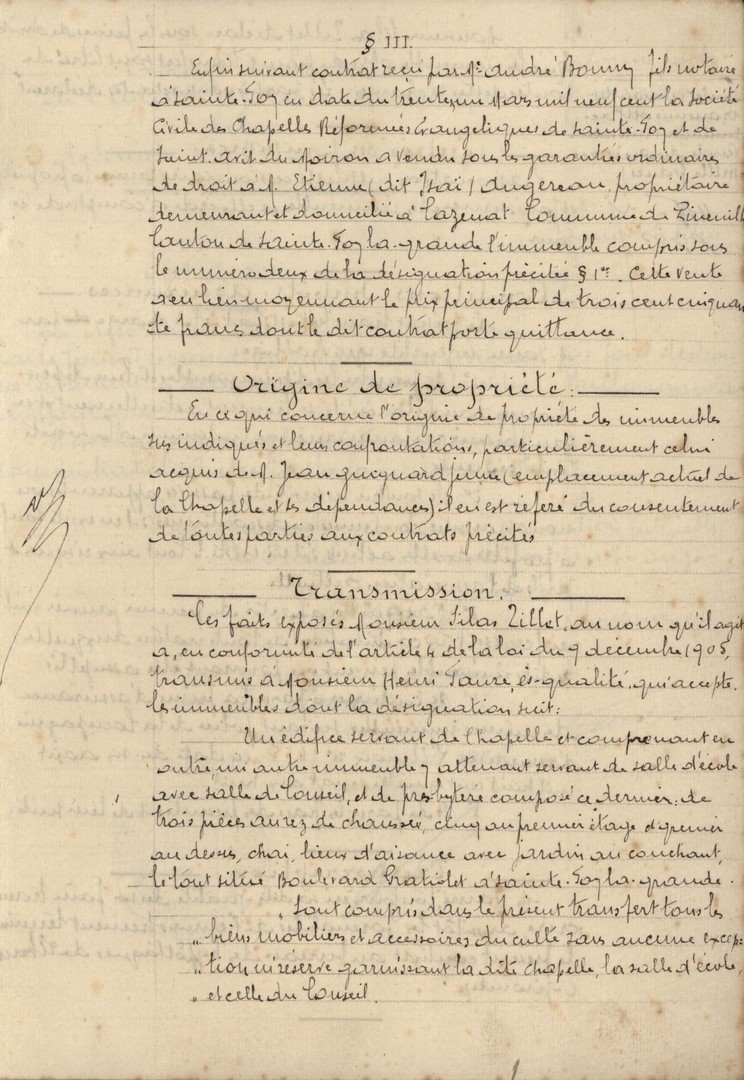 § III.
Enfin suivant contrat reçu par Me André Bonny fils notaire
à Sainte-Foy en date du trente un Mars mil neuf cent la Société
Civile des Chapelles Réformées Evangéliques de Sainte-Foy et de
Saint. Avit du Moiron a vendu sous les garanties ordinaires
de droit à M. Etienne (dit Isaï) Augereau, propriétaire
demeurant et domicilié à Cazenat Commune de Pineuilh
Canton de Sainte-Foy la-grande l'immeuble compris sous
le numéro deux de la désignation précitée § 1er. Cette vente
a eu lieu moyennant le prix principal de trois cent cinquan
te francs dont le dit contrat porte quittance.
Origine de propriété:
En ce qui concerne l'origine de propriété des immeubles
sus indiqués et leurs confrontations, particulièrement celui
acquis de M. Jean Guignard jeune (emplacement actuel de
la Chapelle et ses dépendances) il en est référé du consentement
de toutes parties aux contrats précités
Transmission.
Ces faits exposés Monsieur Silas Zillet, au nom qu'il agit
a, en conformité de l'article 4 de la loi du 9 décembre 1905,
transmis à Monsieur Henri Faure, ès-qualité, qui accepte.
les immeubles dont la désignation suit:
Un édifice servant de Chapelle et comprenant en
outre, un autre immeuble y attenant servant de salle d'école
avec salle de Conseil, et de presbytère composé ce dernier: de
trois pièces au rez de chaussée, cinq au premier étage et grenier
au dessus, chai, lieux d'aisance avec jardin au couchant,
le tout situé Boulevard Gratiolet à Sainte-Foy la-grande.
„ Sont compris dans le présent transfert tous les
„ biens mobiliers et accessoires du culte sans aucune excep-
„ tion ni réserve garnissant la dite chapelle, la salle d'école,
„ et celle du Conseil.